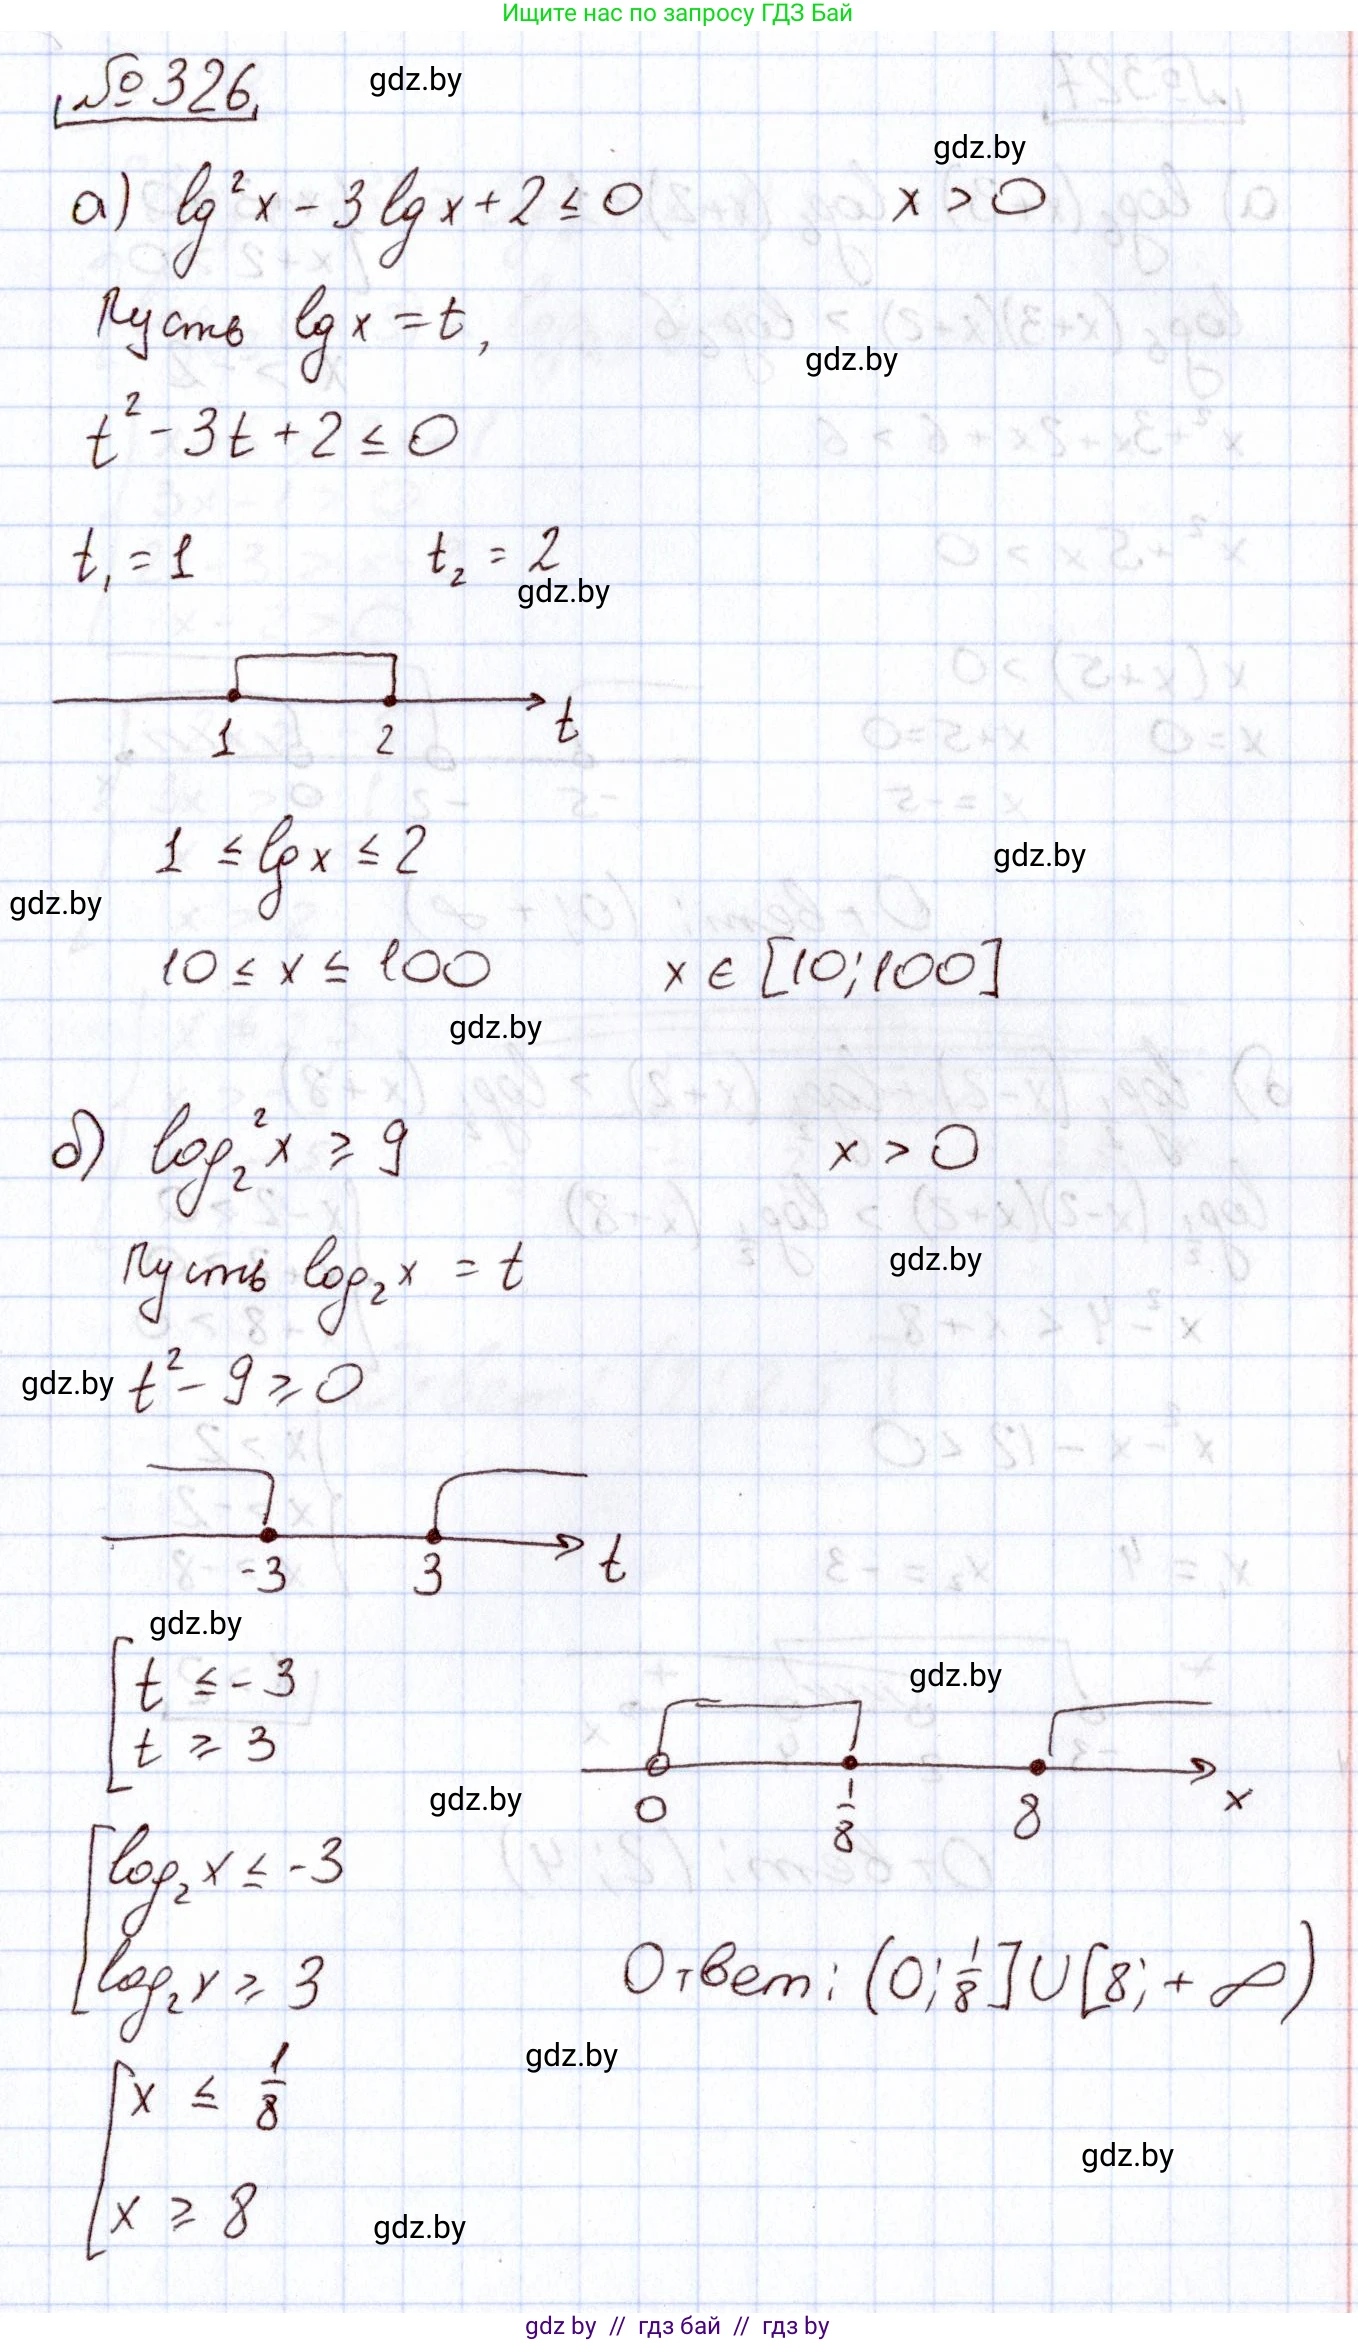 Ищите нас по запросу ГДЗ Бай
№ 326
gdz.by
gdz.by
а) lg²x - 3 lg x + 2 ≤ 0 x > 0
Пусть lg x = t,
gdz.by
t² - 3t + 2 ≤ 0
t₁ = 1 t₂ = 2
gdz.by
1 2 t
1 ≤ lg x ≤ 2
gdz.by
gdz.by
10 ≤ x ≤ 100 x ∈ [10; 100]
gdz.by
б) log₂²x ≥ 9 x > 0
Пусть log₂x = t
gdz.by
gdz.by
t² - 9 ≥ 0
-3 3 t
gdz.by
[t ≤ -3
t ≥ 3
gdz.by
gdz.by
0 1/8 8 x
[log₂x ≤ -3
log₂x ≥ 3
Ответ: (0; 1/8] ∪ [8; +∞)
gdz.by
[x ≤ 1/8
x ≥ 8
gdz.by
gdz.by
gdz by // гдз бай // гдз by